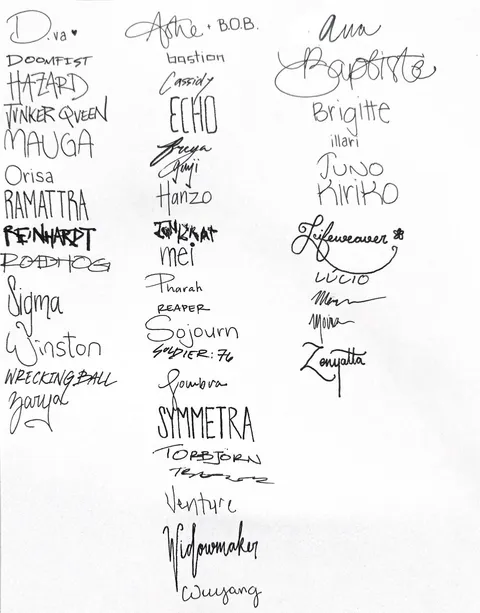 D.va ♥
DOOMFIST
HAZARD
JUNKER QUEEN
MAUGA
Orisa
RAMATTRA
REINHARDT
ROADHOG
Sigma
Winston
WRECKING BALL
Zarya
Ashe • B.O.B.
bastion
Cassidy
ECHO
Freya
Genji
Hanzo
JUNKRAT
mei
Pharah
REAPER
Sojourn
SOLDIER: 76
Sombra
SYMMETRA
TORBJÖRN
TRACER
Venture
Widowmaker
Wuyang
Ana
Baptiste
Brigitte
illari
JUNO
KIRIKO
Lifeweaver
LÚCIO
Moira
Zenyatta